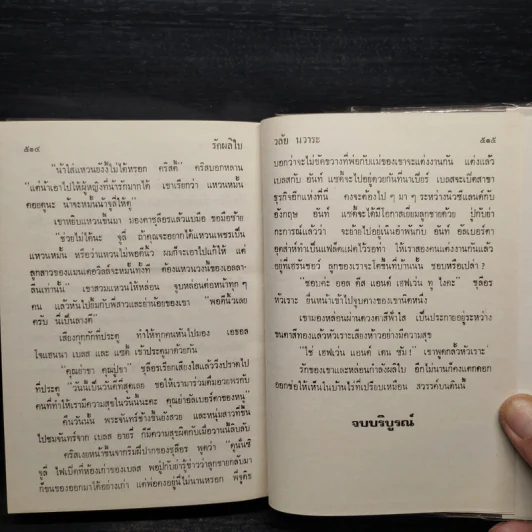 ๕๑๔ รักผลิใบ
"น้าใส่แหวนยังงี้ไม่ได้หรอก คริสตี้" คริสบอกหลาน
"แต่น้าเอาไปให้ผู้หญิงที่น่ารักมากได้ เขาเรียกว่า แหวนหมั้น
คอยดูนะ น้าจะหมั้นน้าจูลี่ให้ดู"
เขาหยิบแหวนขึ้นมา มองตาจูลี่อรแล้วแบมือ ขอมือซ้าย
"ช่วยไม่ได้นะ จูลี่ ถ้าคุณจะอยากได้แหวนเพชรเป็น
แหวนหมั้น หรือว่าแหวนไม่พอดีนิ้ว ผมก็จะเอาไปแก้ให้ แต่
ลูกสาวของแมนเดอวิลล์จะหมั้นทั้งที ต้องแหวนวงนี้ของเอลลา-
ลีนเท่านั้น" เขาสวมแหวนให้หล่อน จูบหล่อนต่อหน้าทุก ๆ
คน แล้วหันไปยิ้มกับพี่สาวและย่าน้อยของเขา "พอดีนิ้วเลย
ครับ นี่เป็นลางดี"
เสียงกุกกักที่ประตู ทำให้ทุกคนหันไปมอง เธอล
โจแอนนา เบลส และ แซดี้ เข้าประตูมาด้วยกัน
"คุณย่าขา คุณปู่ขา" จูลี่อรเรียกเสียงใสแล้ววิ่งปราดไป
ที่ประตู "วันนี้เป็นวันดีที่สุดเลย ขอให้เรามาร่วมดื่มอวยพรกับ
คนที่ทำให้เรามีความสุขในวันนี้นะคะ คุณย่าอัลเบอร์ตาของหนู"
คืนวันนั้น พระจันทร์ข้างขึ้นยังสวย และหนุ่มสาวที่ขึ้น
ไปชมจันทร์จาก เบลส อายรี่ ก็มีความสุขผิดกับเมื่อวานนี้ลิบลับ
คริสเงยหน้าขึ้นจากริมฝีปากของจูลี่อร พูดว่า "คุณนั่นซี
จูลี่ ไพเบิ้ดที่ห้องเก่าของเบลส พอปู่กับย่ารู้ข่าวว่าลูกชายกลับมา
ก็ขนของออกมาได้อย่างเก่า แต่พ่อคงอยู่นี่ไม่นานหรอก พี่จูดิธ
วลัย นวาระ ๕๑๕
บอกว่าจะไม่ขัดขวางที่พ่อกับแม่ของเขาจะแต่งงานกัน แต่งแล้ว
เบลสกับ อันท์ แซดี้จะไปอยู่ด้วยกันที่นาเบียร์ เบลสจะเปิดสาขา
ธุรกิจอีกแห่งที่นี่ คงจะต้องไป ๆ มา ๆ ระหว่างนิวซีแลนด์กับ
อังกฤษ อันท์ แซดี้จะได้มีโอกาสเยี่ยมลูกชายด้วย ปู่กับย่า
กะการณ์แล้วว่า จะย้ายไปอยู่นั่นอำพนกับ อันท์ อัลเบอร์ตา
อุตส่าห์ทำเป็นแฟล็ตแฝดไว้รอท่า ให้เราสองคนแต่งงานกันแล้ว
อยู่ที่เฮรันซอร์ ลูกของเราจะโตขึ้นที่บ้านนั้น ชอบหรือเปล่า ?
"ชอบค่ะ ออล ดีส แอนด์ เฮฟเว่น ทู ไงคะ" จูลี่อร
หัวเราะ ยื่นหน้าเข้าไปจูบคางของเขานิดหนึ่ง
เขามองหล่อนผ่านดวงตาสีฟ้าใส เป็นประกายอยู่ระหว่าง
ขนตาสีทองแล้วหัวเราะเสียงห้าวอย่างมีความสุข
"ใช่ เฮฟเว่น แอนด์ เดน ซัม !" เขาพูดกลั้วหัวเราะ
รักของเขาและหล่อนกำลังผลิใบ อีกไม่นานก็คงแตกดอก
ออกช่อให้เห็นในบ้านไร่ที่เปรียบเหมือน สวรรค์บนดินนี้
จบบริบูรณ์